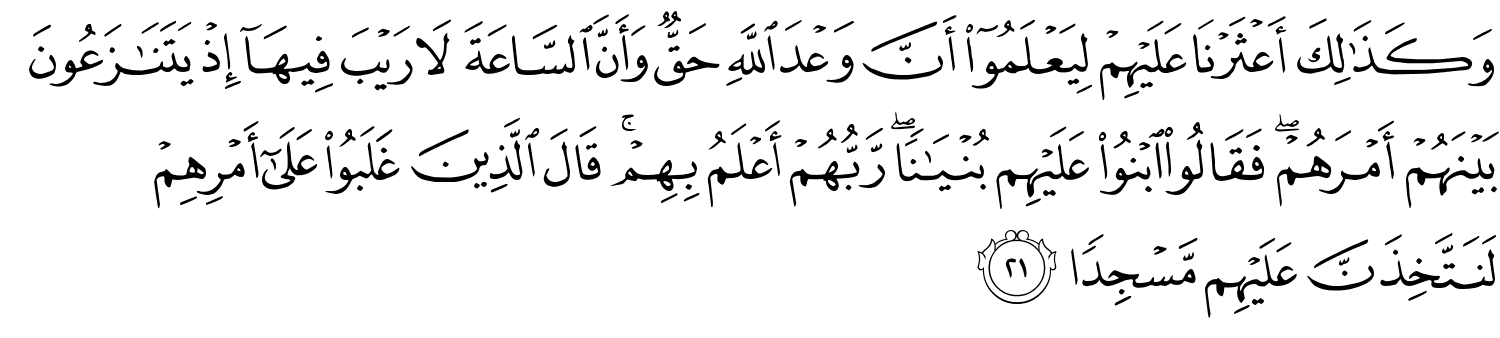 وَكَذَٰلِكَ أَعْثَرْنَا عَلَيْهِمْ لِيَعْلَمُوٓا۟ أَنَّ وَعْدَ ٱللَّهِ حَقٌّ وَأَنَّ ٱلسَّاعَةَ لَا رَيْبَ فِيهَآ إِذْ يَتَنَـٰزَعُونَ
بَيْنَهُمْ أَمْرَهُمْ ۖ فَقَالُوا۟ ٱبْنُوا۟ عَلَيْهِم بُنْيَـٰنًا ۖ رَّبُّهُمْ أَعْلَمُ بِهِمْ ۚ قَالَ ٱلَّذِينَ غَلَبُوا۟ عَلَىٰٓ أَمْرِهِمْ
لَنَتَّخِذَنَّ عَلَيْهِم مَّسْجِدًا ٢١